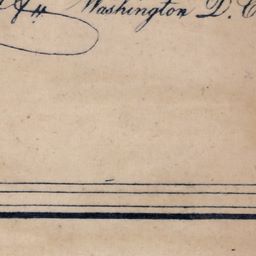 Washington D.C